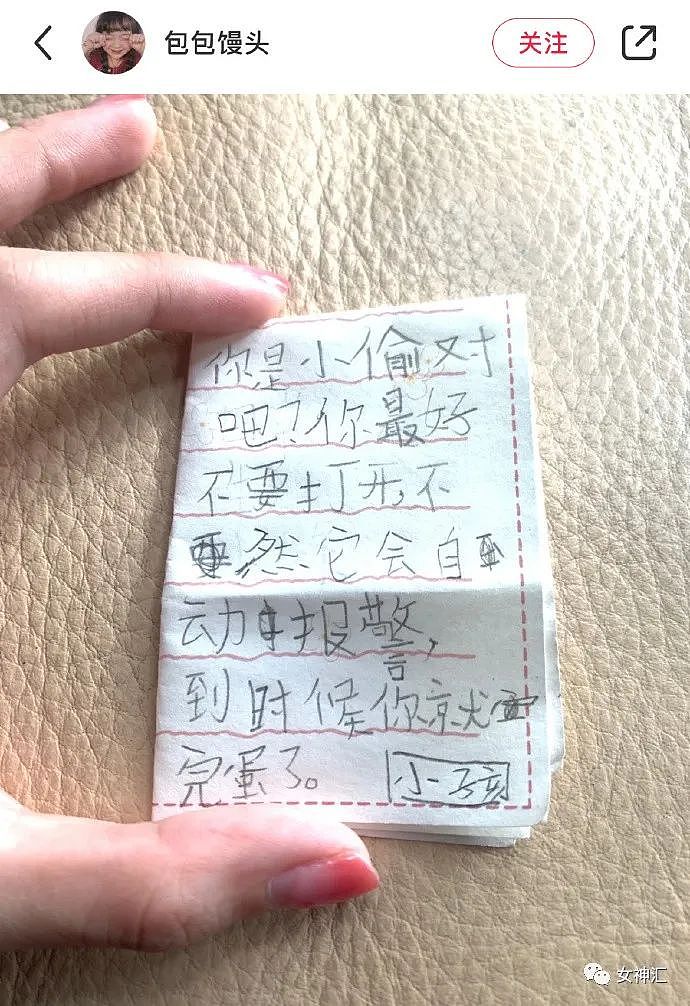 包包馒头
关注
你是小偷对
吧?你最好
不要打开,不
然它会自
动报警,
到时候你就
完蛋了。 小孩
女神汇